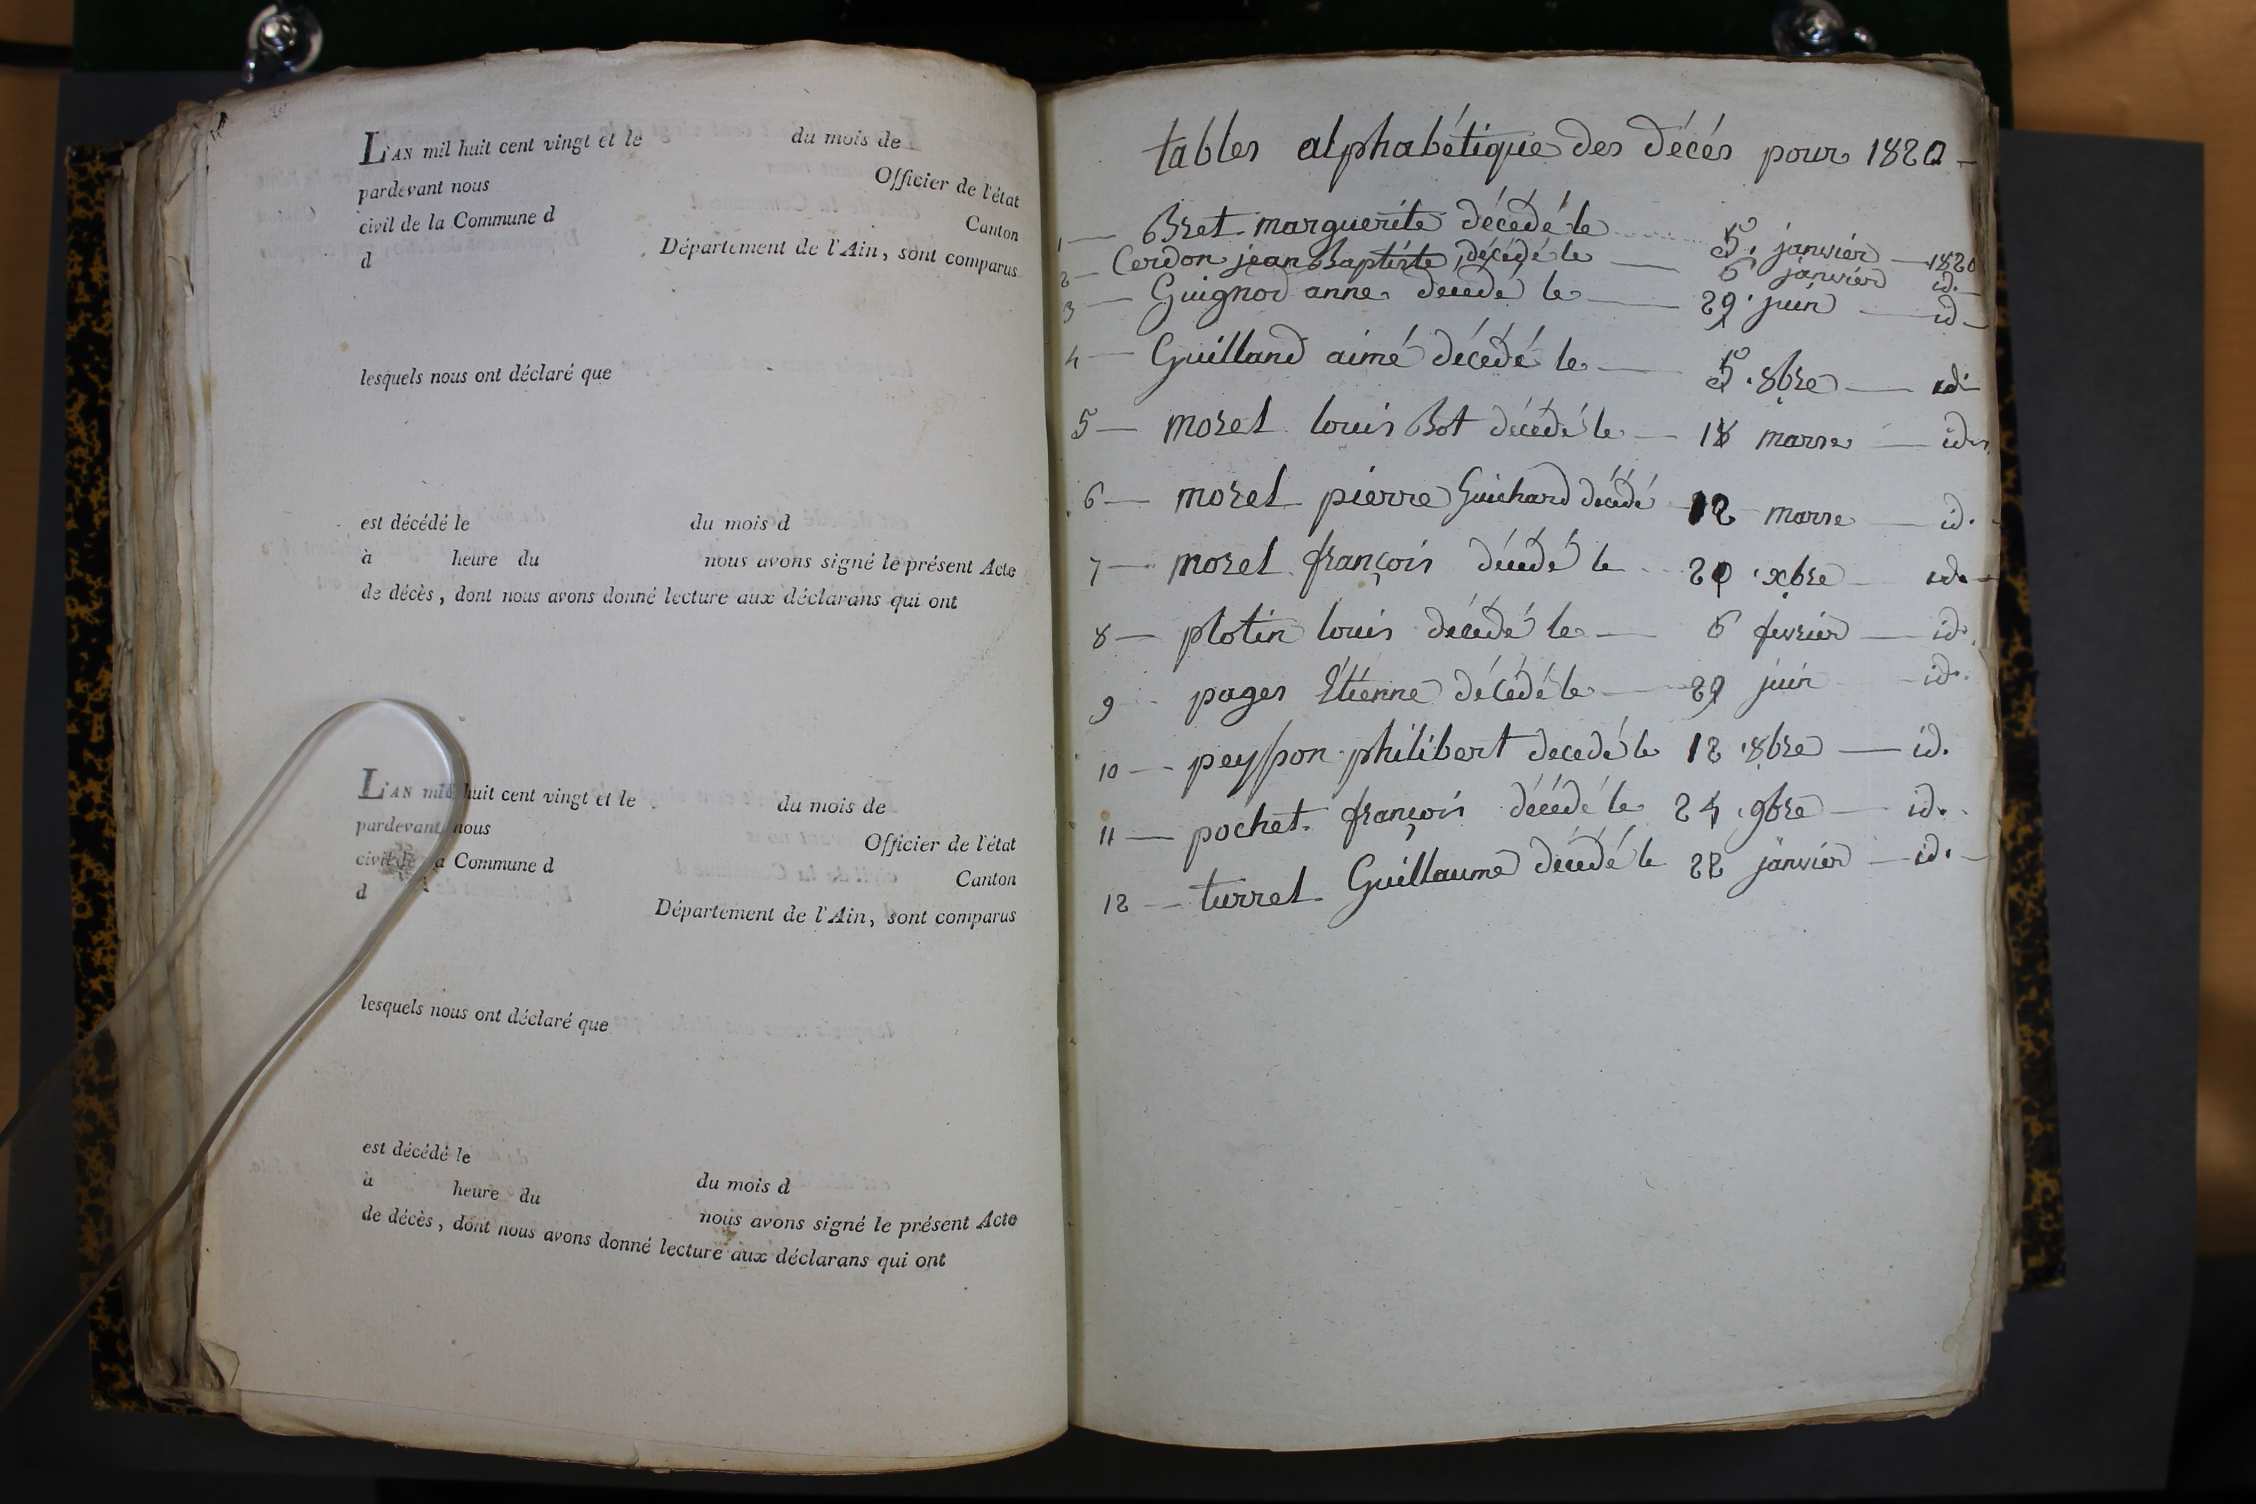 L'AN mil huit cent vingt et le du mois de
pardevant nous Officier de l'état
civil de la Commune d Canton
d Département de l'Ain, sont comparus
lesquels nous ont déclaré que
est décédé le du mois d
à heure du nous avons signé le présent Acte
de décès, dont nous avons donné lecture aux déclarans qui ont
L'AN mil huit cent vingt et le du mois de
pardevant nous Officier de l'état
civil de la Commune d Canton
d Département de l'Ain, sont comparus
lesquels nous ont déclaré que
est décédé le du mois d
à heure du nous avons signé le présent Acte
de décès, dont nous avons donné lecture aux déclarans qui ont
tables alphabétique des décés pour 1820
1 — Bret marguerite décédé le 5 janvier — 1820
2 — Cerdon jean Baptiste décédé le — 6 janvier id.
3 — Guignod anne décédé le — 29 juin — id
4 — Guilland aimé décédé le — 5 8bre — id
5 — morel louis Bot décédé le — 18 marse — id
6 — morel pierre Guichard décédé 12 marse — id.
7 — morel françois décédé le 20 xbre — id.
8 — plotin louis décédé le — 6 fevrier — id.
9 pages Etienne décédé le — 29 juin id.
10 — peysson philibert decedé le 12 8bre — id.
11 — pochet françois décédé le 24 9bre — id.
12 — turrel Guillaume décédé le 22 janvier — id.